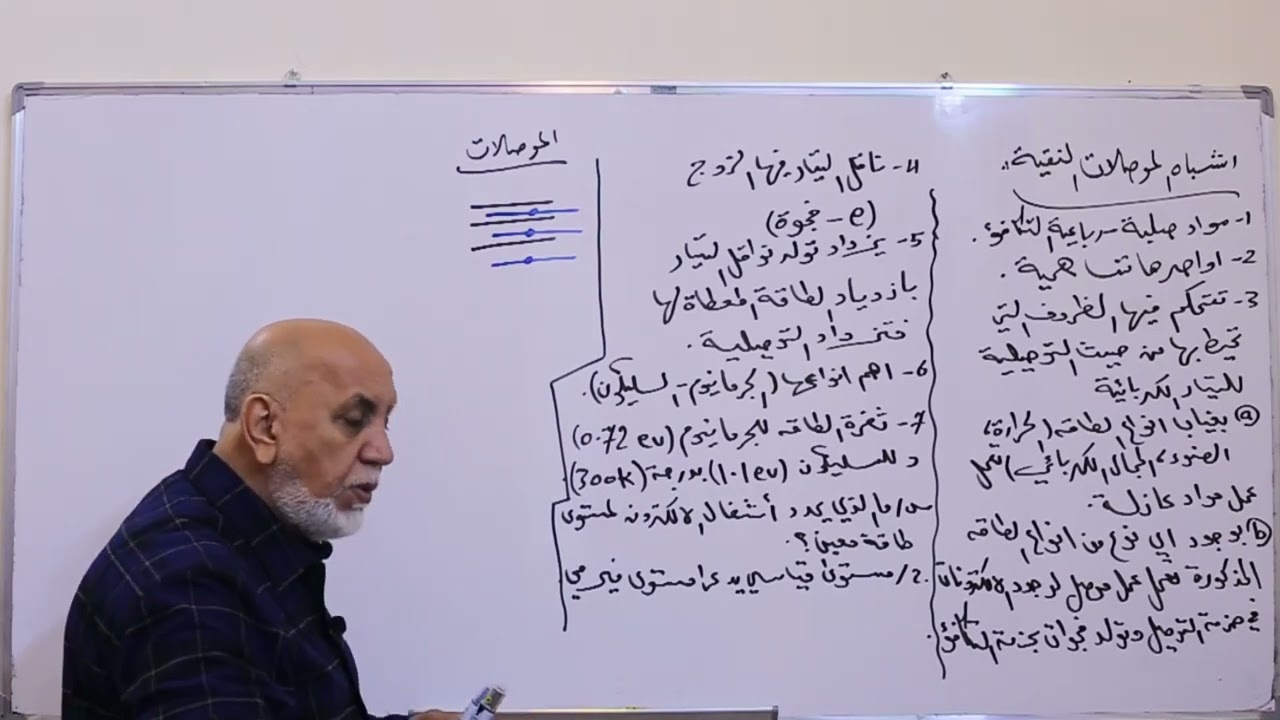 اشباه الموصلات النقية:
1- مواد صلبة رباعية التكافؤ.
2- اواصرها تساهمية.
3- تتحكم فيها الظروف التي
تحيط بها من حيث التوصيلية
للتيار الكهربائية
ⓐ بغياب انواع الطاقة (الحرارة،
الضوء، المجال الكهربائي) تعمل
عمل مواد عازلة.
ⓑ بوجود اي نوع من انواع الطاقة
المذكورة تعمل عمل موصل لوجود الالكترونات
في حزمة التوصيل وتولد فجوات بحزمة التكافؤ.
4- ناقل التيار فيها الزوج
(e - فجوة)
5- يزداد تولد نواقل التيار
بازدياد الطاقة المعطاة لها
فتزداد التوصيلية.
6- اهم انواعها (الجرمانيوم - السليكون).
7- ثغرة الطاقة للجرمانيوم (0.72 ev)
و للسليكون (1.1 ev) بدرجة (300k)
س/ ما الذي يحدد أشغال الالكترون لمستوى
طاقة معين؟.
2/ مستوى قياسي يدعى مستوى فيرمي
الموصلات